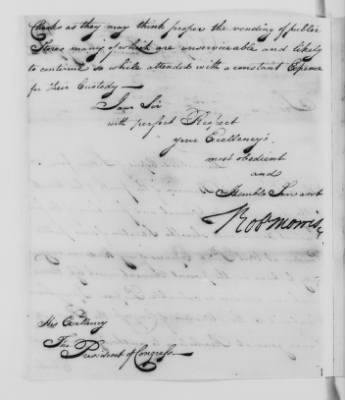 Checks as they may think proper the vending of public
Stores many of which are unserviceable and likely
to continue so while attended with a constant Expence
for their Custody—
I am Sir
with perfect Respect
your Excellency's
most obedient
and
Humble Servant
Rob Morris
His Excellency
The President of Congress—